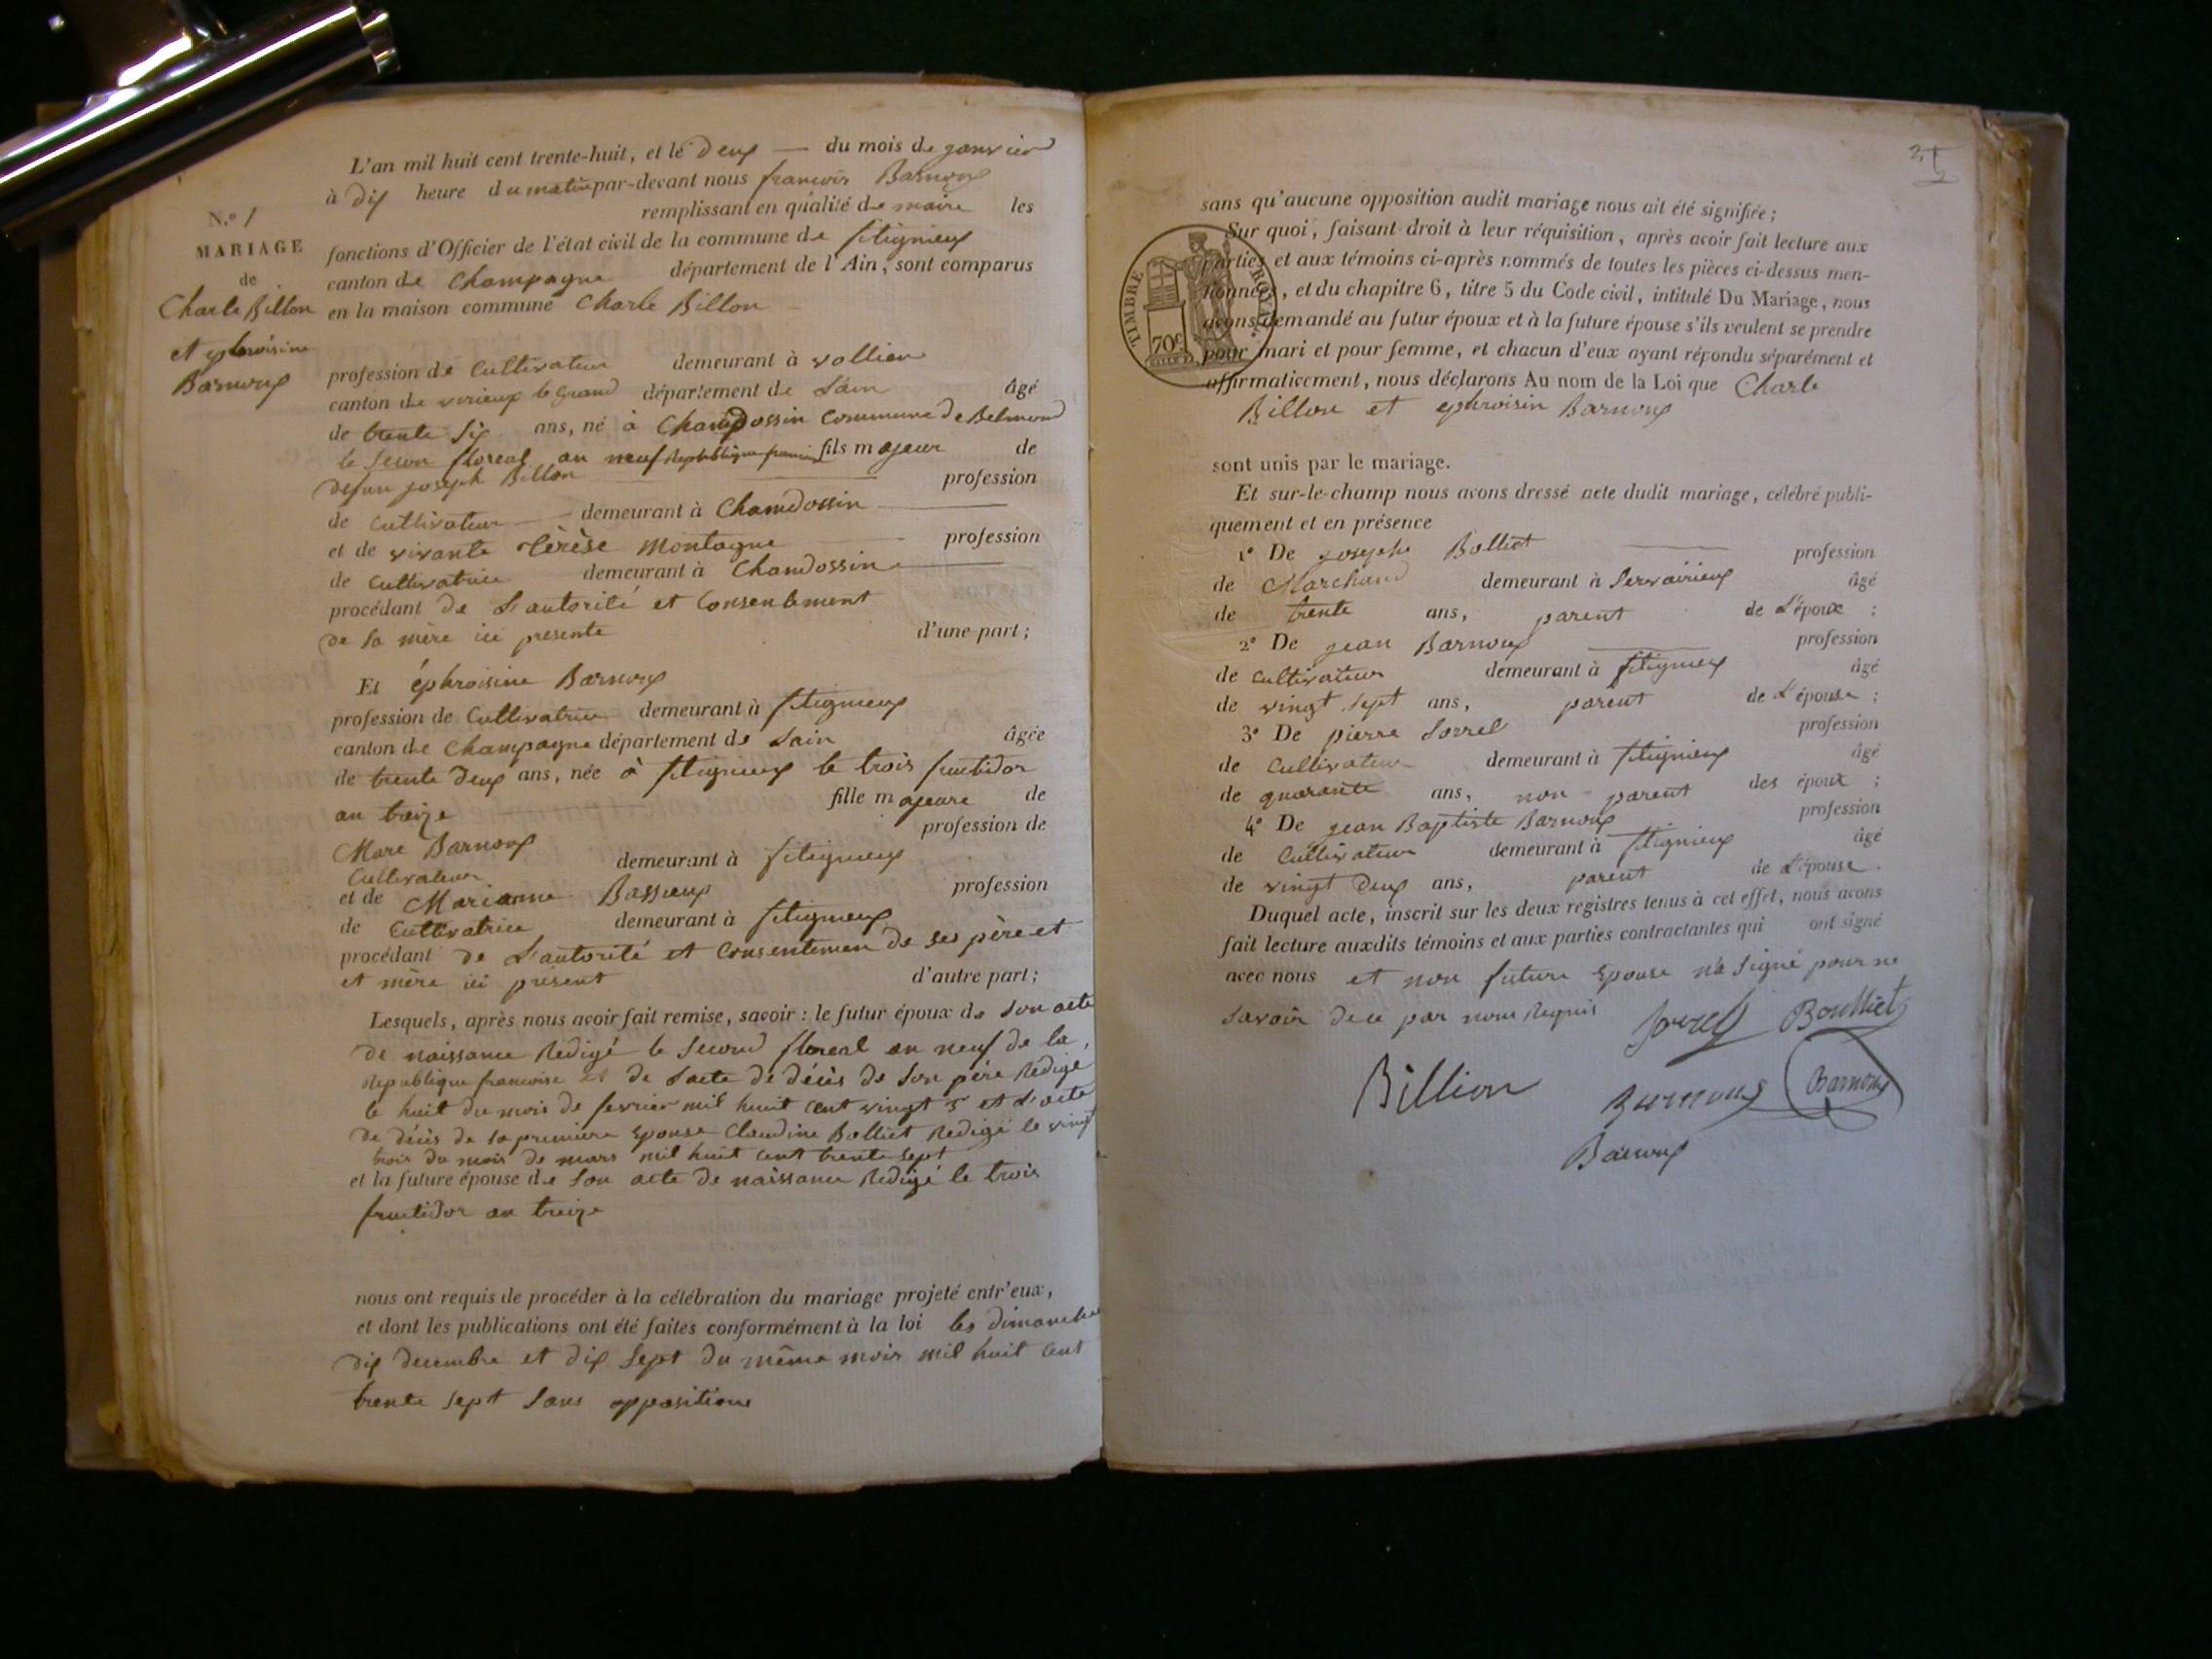 L'an mil huit cent trente-huit, et le deux — du mois de janvier
à dix heure du matin par-devant nous francois Barnoux
remplissant en qualité de maire les
N.º 1
MARIAGE
de
Charle Billon
et ephroisine
Barnoux
fonctions d'Officier de l'état civil de la commune de fitignieux
canton de Champagne département de l'Ain, sont comparus
en la maison commune Charle Billon
profession de Cultivateur demeurant à vollien
canton de virieux le grand département de L'ain âgé
de trente six ans, né à Chandossin Commune de Belmond
le secon floreal an neuf Republique francaise fils majeur de
defun joseph Billon profession
de Cultivateur demeurant à Chandossin
et de vivante Térèse Montagne profession
de Cultivatrice demeurant à Chandossin
procédant de L'autorité et Consentement
de sa mère ici presente d'une part;
Et éphroisine Barnoux
profession de Cultivatrice demeurant à fitignieux
canton de Champagne département de Lain âgée
de trente deux ans, née à fitignieux le trois fructidor
an treize fille majeure de
Marc Barnoux profession de
Cultivateur demeurant à fitignieux
et de Marianne Bassieux profession
de Cultivatrice demeurant à fitignieux
procédant de L'autorité et Consentemen de ses père et
et mère ici présent d'autre part;
Lesquels, après nous avoir fait remise, savoir: le futur époux de son acte
de naissance Redigé le second floreal an neuf de la
Republique francoise et de L'acte de décès de son père Redigé
le huit du mois de fevrier mil huit cent vingt 5 et L'acte
de décès de sa première Epouse Claudine Bolliet Redigé le vingt
trois du mois de mars mil huit cent trente sept
et la future épouse de son acte de naissance Redigé le trois
fructidor an treize
nous ont requis de procéder à la célébration du mariage projeté entr'eux,
et dont les publications ont été faites conformément à la loi les dimanche
dix decembre et dix sept du même mois mil huit cent
trente sept sans opposition
2
sans qu'aucune opposition audit mariage nous ait été signifiée;
Sur quoi, faisant droit à leur réquisition, après avoir fait lecture aux
parties et aux témoins ci-après nommés de toutes les pièces ci-dessus men-
tionnées, et du chapitre 6, titre 5 du Code civil, intitulé Du Mariage, nous
avons demandé au futur époux et à la future épouse s'ils veulent se prendre
pour mari et pour femme, et chacun d'eux ayant répondu séparément et
affirmativement, nous déclarons Au nom de la Loi que Charle
TIMBRE ROYAL
70c
Billon et ephroisin Barnoux
sont unis par le mariage.
Et sur-le-champ nous avons dressé acte dudit mariage, célébré publi-
quement et en présence
1º De josephe Bolliet profession
de Marchand demeurant à Servairieux âgé
de trente ans, parent de L'époux ;
2º De jean Barnoux profession
de Cultivateur demeurant à fitignieux âgé
de vingt sept ans, parent de L'épouse ;
3º De pierre Sorrel profession
de Cultivateur demeurant à fitignieux âgé
de quarante ans, non parent des époux ;
4º De jean Baptiste Barnoux profession
de Cultivateur demeurant à fitignieux âgé
de vingt deux ans, parent de L'épouse .
Duquel acte, inscrit sur les deux registres tenus à cet effet, nous avons
fait lecture auxdits témoins et aux parties contractantes qui ont signé
avec nous et non future Epouse n'a signé pour ne
savoir de ce par nous Requis
Sorrel Boulliet
Billion Barnoux Barnoux
Barnoux